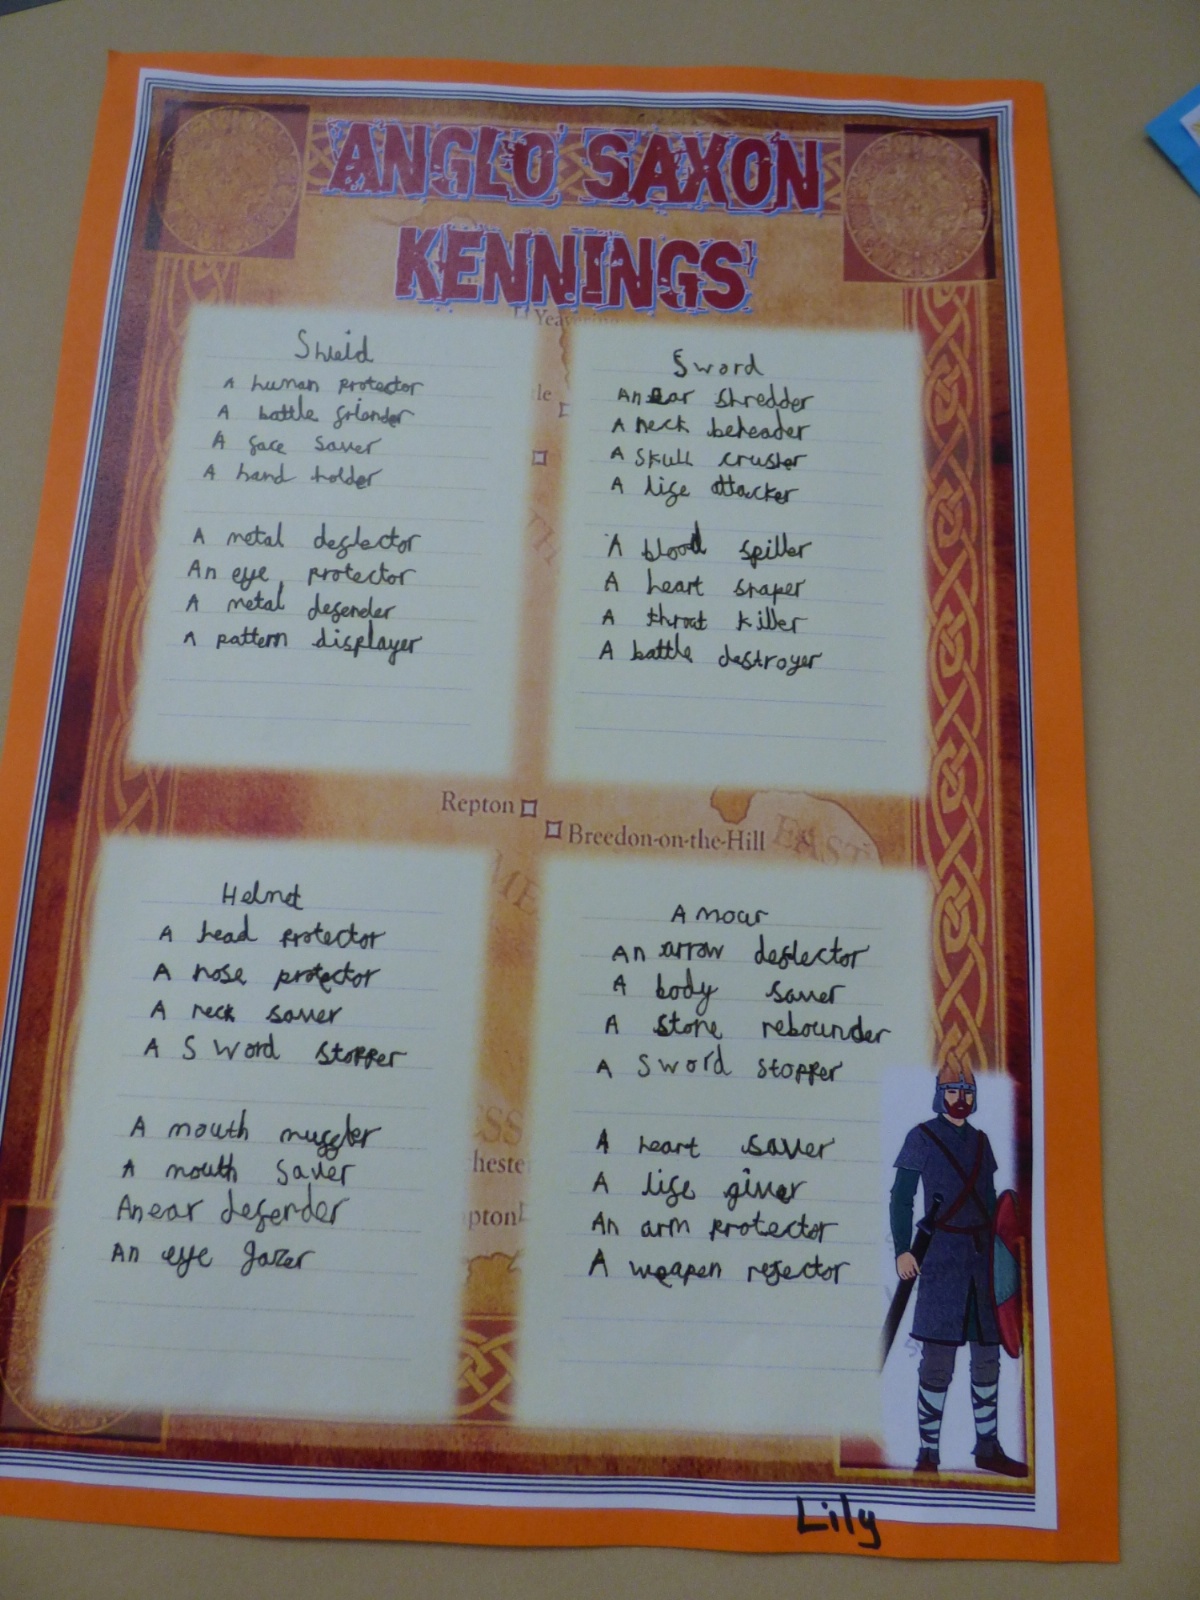 ANGLO SAXON
KENNINGS
Shield
A human protector
A battle
A face saver
A hand holder
A metal deflector
An eye protector
A metal defender
A pattern displayer
Sword
An ear shredder
A neck beheader
A skull crusher
A life attacker
A blood spiller
A heart
A throat killer
A battle destroyer
Repton
Breedon-on-the-Hill
EAST
Helmet
A head protector
A nose protector
A neck saver
A Sword stopper
A mouth muffler
A mouth saver
An ear defender
An eye gazer
Amour
An arrow deflector
A body saver
A stone rebounder
A sword stopper
A heart saver
A life giver
An arm protector
A weapen rejector
Lily